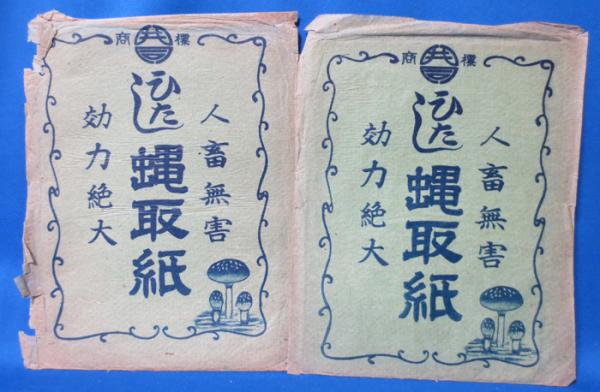 商標
人畜無害
ひたし
蝿取紙
効力絶大
商標
人畜無害
ひたし
蝿取紙
効力絶大